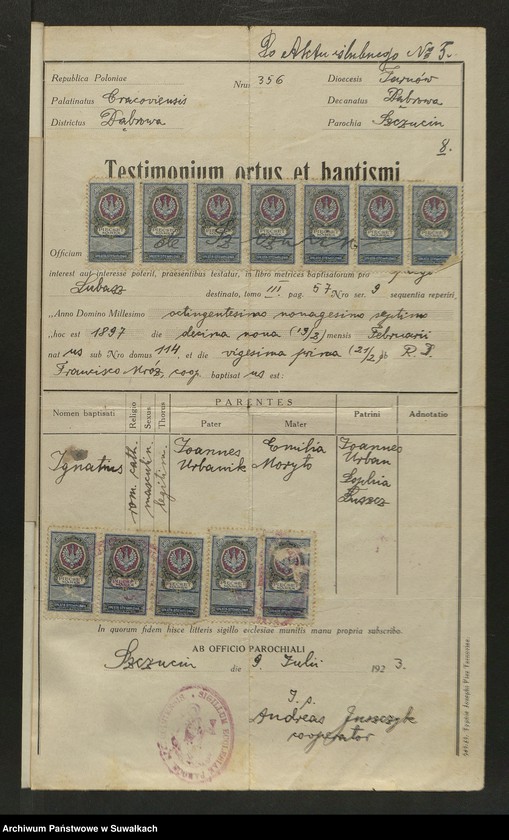 Do Aktu ślubnego No 5.
Republica Poloniae
Nrus 356
Dioecesis Tarnów
Palatinatus Cracoviensis
Decanatus Dąbrowa
Districtus Dąbrowa
Parochia Szczucin
8.
Testimonium ortus et baptismi
Officium
interest aut interesse poterit, praesentibus testatur, in libro metrices baptisatorum pro
Lubasz destinato, tomo III. pag. 57 Nro ser. 9 sequentia reperiri,
"Anno Domino Millesimo octingentesimo nonagesimo septimo
"hoc est 1897 die decima nona (19/2) mensis Februarii
natus sub Nro domus 114, et die vigesima prima (21/2) ab R. D.
Francisco Mroz, coop. baptisatus est:
PARENTES
Nomen baptisati
Religio
Sexus
Thorus
Pater
Mater
Patrini
Adnotatio
Ignatius
rom. cath.
masculin.
legitim.
Joannes
Urbanik
Emilia
Moryto
Joannes
Urban
Sophia
In quorum fidem hisce litteris sigillo ecclesiae munitis manu propria subscribo.
AB OFFICIO PAROCHIALI
Szczucin die 9. Julii 1923.
Andreas Juszczyk
cooperator
Archiwum Państwowe w Suwałkach